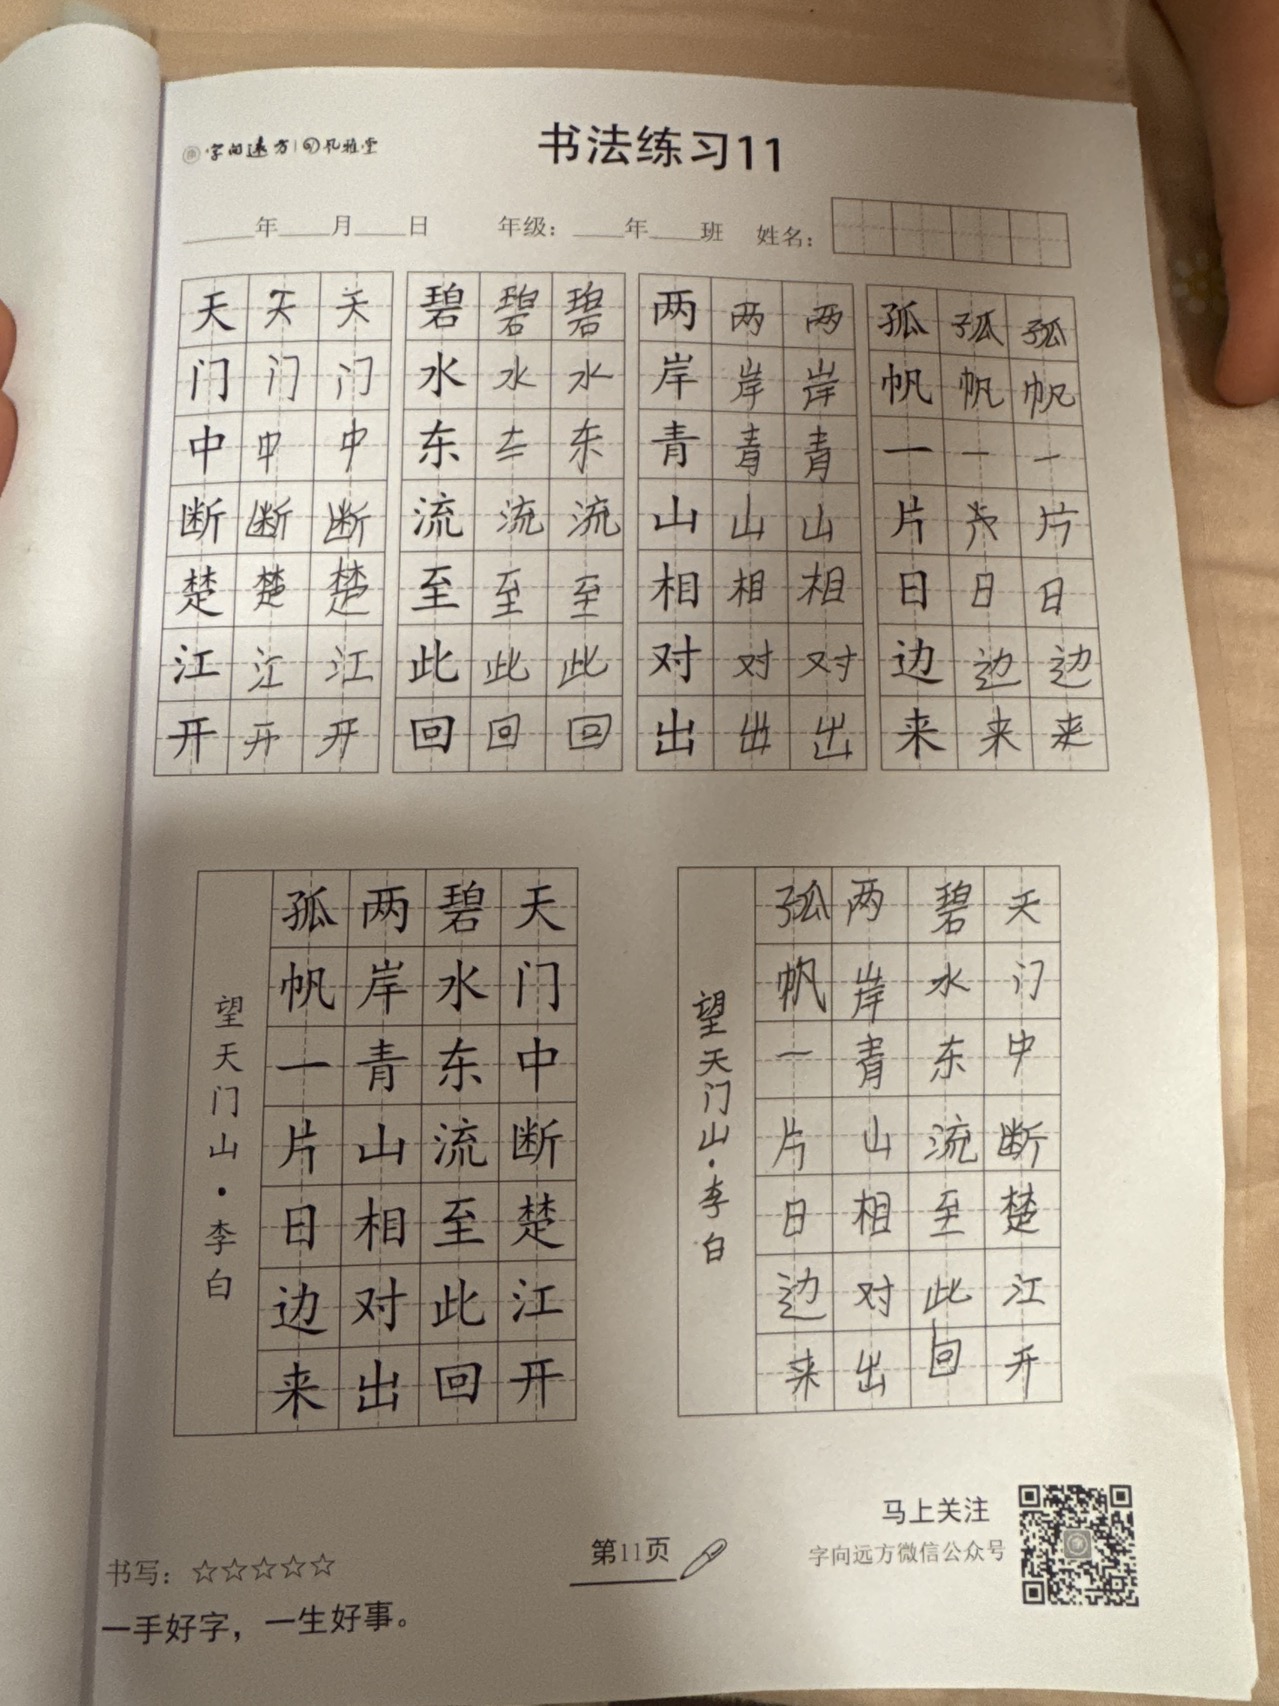 字向远方 | 孔雅堂
书法练习11
____年____月____日 年级：____年____班 姓名：
天 天 天 碧 碧 碧 两 两 两 孤 孤 孤
门 门 门 水 水 水 岸 岸 岸 帆 帆 帆
中 中 中 东 东 青 青 青 一 一 一
断 断 断 流 流 流 山 山 山 片 片
楚 楚 楚 至 至 至 相 相 相 日 日 日
江 江 江 此 此 此 对 对 对 边 边 边
开 开 开 回 回 回 出 出 出 来 来 来
天门中断楚江开
碧水东流至此回
两岸青山相对出
孤帆一片日边来
望天门山·李白
天门中断楚江开
碧水东流至此回
两岸青山相对出
孤帆一片日边来
望天门山·李白
马上关注
字向远方微信公众号
第11页
书写：☆☆☆☆☆
一手好字，一生好事。